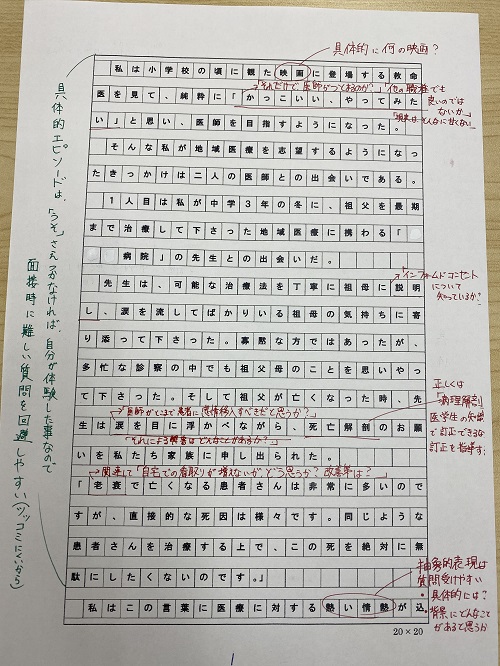 具体的に何の映画？
私は小学校の頃に観た映画に登場する救命
「それだけで医師がつとまるのか？」「他の職種でも
良いのでは
ないか」
「現実はそんなに甘くない」
医を見て、純粋に「かっこいい、やってみた
い」と思い、医師を目指すようになった。
そんな私が地域医療を志望するようになっ
たきっかけは二人の医師との出会いである。
1人目は私が中学3年の冬に、祖父を最期
まで治療して下さった地域医療に携わる「
病院」の先生との出会いだ。
インフォームドコンセント
について
知っているか？
先生は、可能な治療法を丁寧に祖母に説明
し、涙を流してばかりいる祖母の気持ちに寄
り添って下さった。寡黙な方ではあったが、
多忙な診察の中でも祖父母のことを思いやっ
て下さった。そして祖父が亡くなった時、先
「医師がどこまで患者に感情移入すべきだと思うか？」
生は涙を目に浮かべながら、死亡解剖のお願
正しくは
病理解剖
医学生の知識
で訂正できる
訂正を指導す。
「それによる弊害はどんなことがあるか？」
いを私たち家族に申し出られた。
関連して「自宅での看取りが増えないが、どう思うか？改善策は？」
「老衰で亡くなる患者さんは非常に多いので
すが、直接的な死因は様々です。同じような
患者さんを治療する上で、この死を絶対に無
駄にしたくないのです。」
抽象的表現は
質問受けやすい
・具体的には？
・背景にどんなこと
があると思うか
私はこの言葉に医療に対する熱い情熱が込
20×20
具体的エピソードは、「うそ」さえつかなければ、自分が体験した事なので
面接時に難しい質問を回避しやすい（ツッコミにくいから）
1